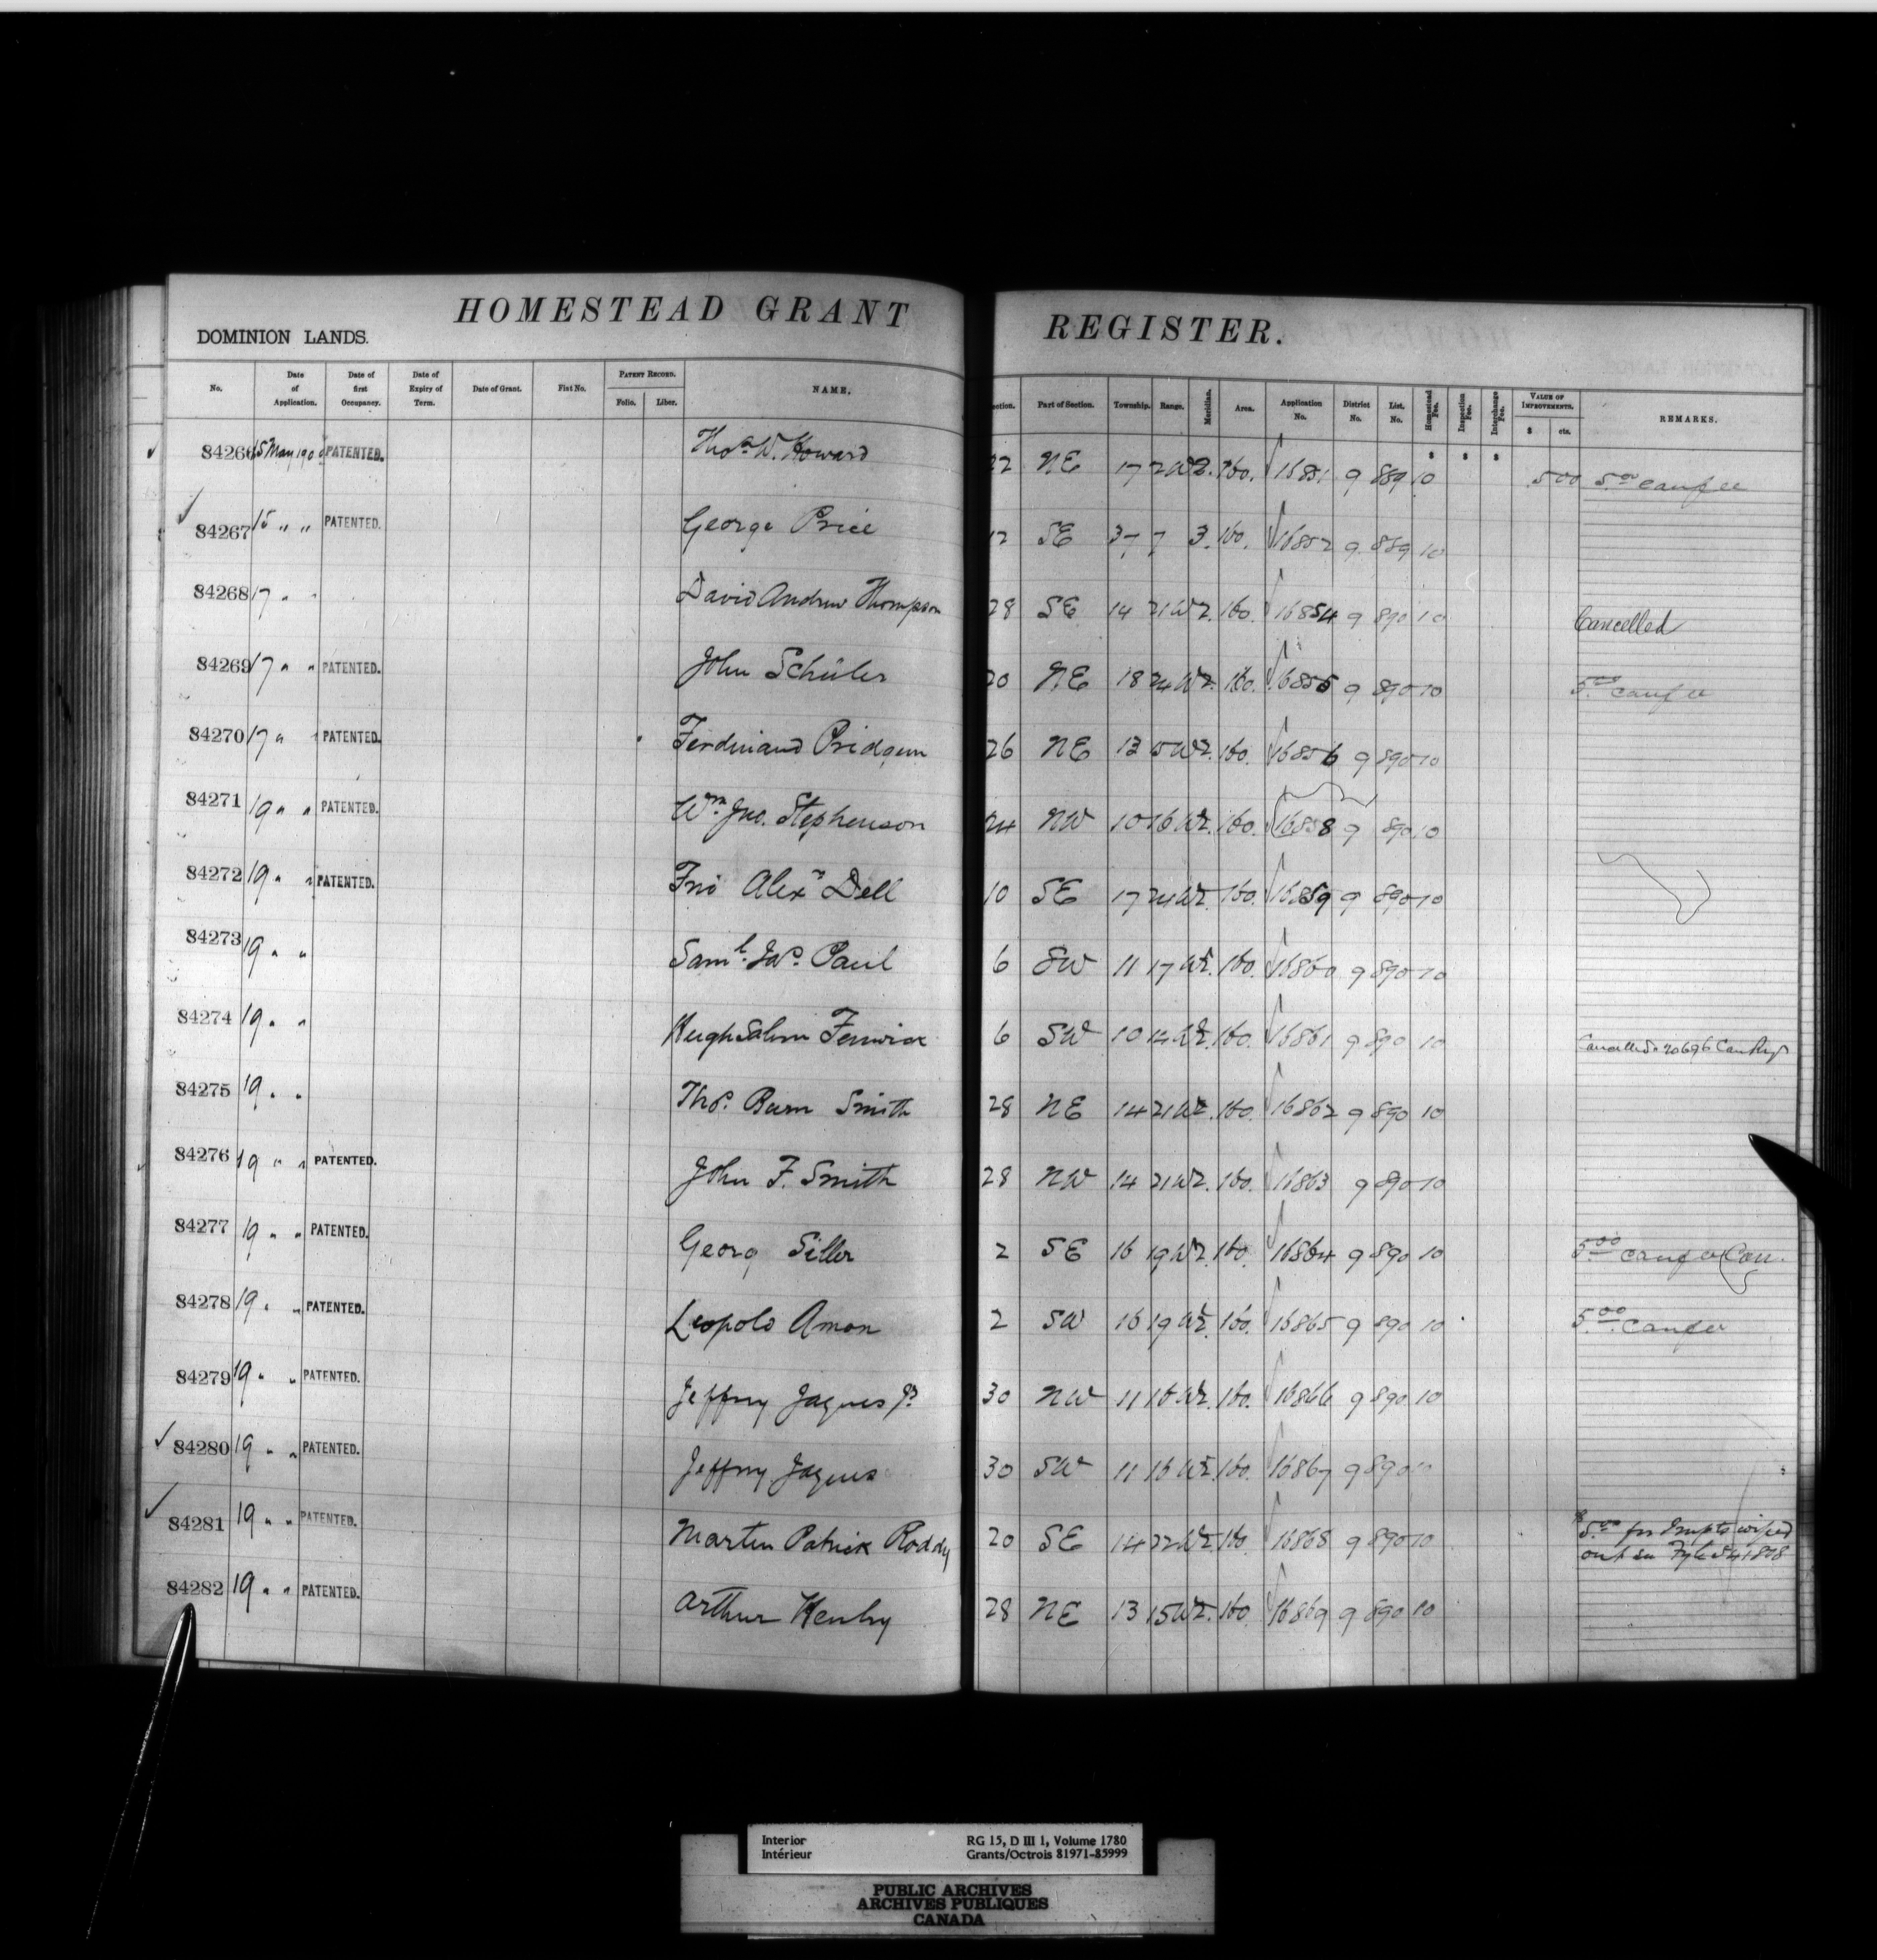 HOMESTEAD GRANT REGISTER.
DOMINION LANDS.
No. Date of Application. Date of first Occupancy. Date of Expiry of Term. Date of Grant. Fist No. PATENT RECORD. Folio. Liber. NAME. ection. Part of Section. Township. Range. Meridian. Area. Application No. District No. List. No. Homestead Fee. Inspection Fee. Interchange Fee. VALUE OF IMPROVEMENTS. $ cts. REMARKS.
84266 15 May 190 PATENTED. Thos W. Howard 22 NE 17 2 W2. 160. 16851 9 889 10 500 5.00
84267 15 " " PATENTED. George Price 12 SE 37 7 3. 160. 16852 9 889 10
84268 17 " " David Andrew Thompson 28 SE 14 21 W2. 160. 16854 9 890 10 Cancelled
84269 17 " " PATENTED. John Schüler 20 NE 18 24 W2. 160. 16855 9 890 10 5.00
84270 17 " " PATENTED. Ferdinand Pridgem 26 NE 13 5 W2. 160. 16856 9 890 10
84271 19 " " PATENTED. Wm Jno. Stephenson 24 NW 10 16 W2. 160. 16858 9 890 10
84272 19 " " PATENTED. Alexr Dell 10 SE 17 24 W2. 160. 16859 9 890 10
84273 19 " " Saml. Jas. Paul 6 SW 11 17 W2. 160. 16860 9 890 10
84274 19 " " Hugh Fenwick 6 SW 10 14 W2. 160. 16861 9 890 10 Cancelled 20696
84275 19 " " Thos. Burn Smith 28 NE 14 21 W2. 160. 16862 9 890 10
84276 19 " " PATENTED. John F. Smith 28 NW 14 21 W2. 160. 16863 9 890 10
84277 19 " " PATENTED. Georg Siller 2 SE 16 19 W2. 160. 16864 9 890 10 5.00 Can.
84278 19 " " PATENTED. Leopold Amon 2 SW 16 19 W2. 160. 16865 9 890 10 5.00
84279 19 " " PATENTED. Jeffry Jaques Jr 30 NW 11 16 W2. 160. 16866 9 890 10
84280 19 " " PATENTED. Jeffry Jaques 30 SW 11 16 W2. 160. 16867 9 890 10
84281 19 " " PATENTED. Martin Patrick Roddy 20 SE 14 22 W2. 160. 16868 9 890 10 5.00 for Impts wiped
out
84282 19 " " PATENTED. Arthur Henby 28 NE 13 15 W2. 160. 16869 9 890 10
Interior RG 15, D III 1, Volume 1780
Intérieur Grants/Octrois 81971-85999
PUBLIC ARCHIVES
ARCHIVES PUBLIQUES
CANADA